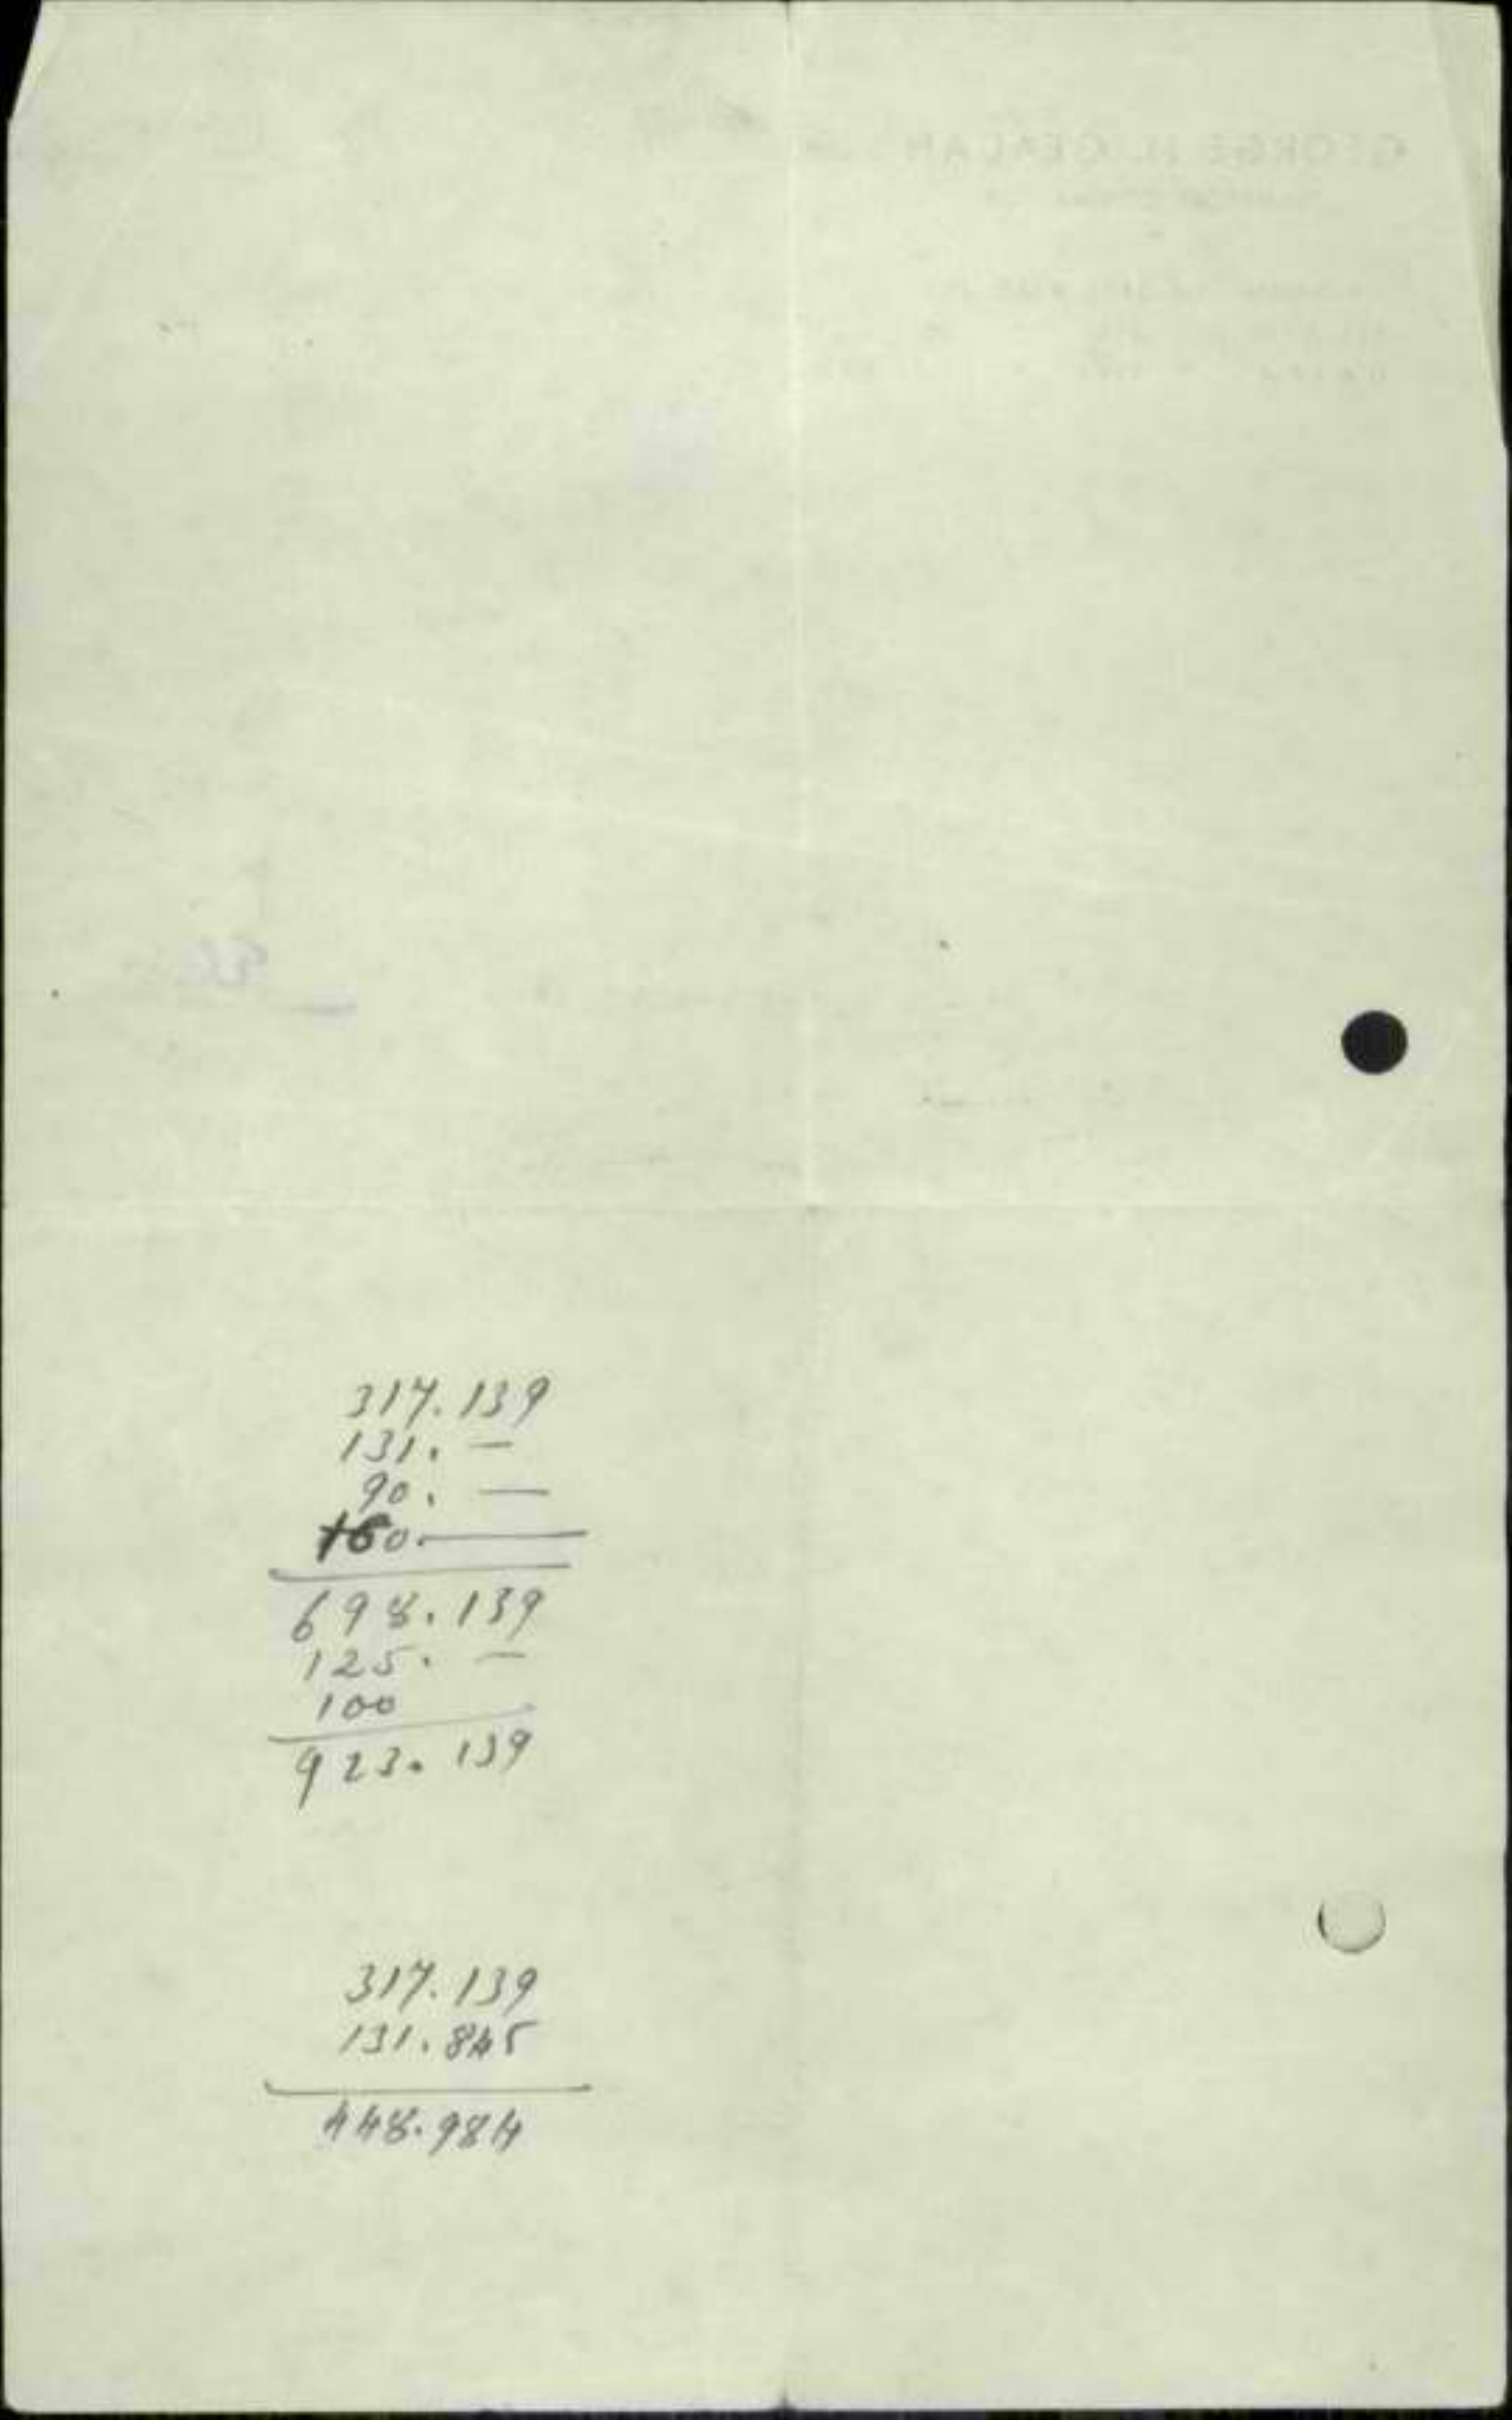 317.139
131. —
90. —
160. —
698.139
125. —
100
923.139
317.139
131.845
448.984